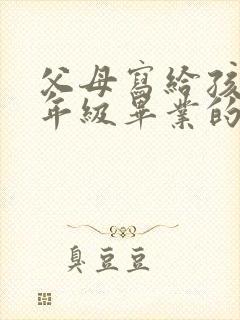 父母寫給孩
年級畢業的
臭豆豆